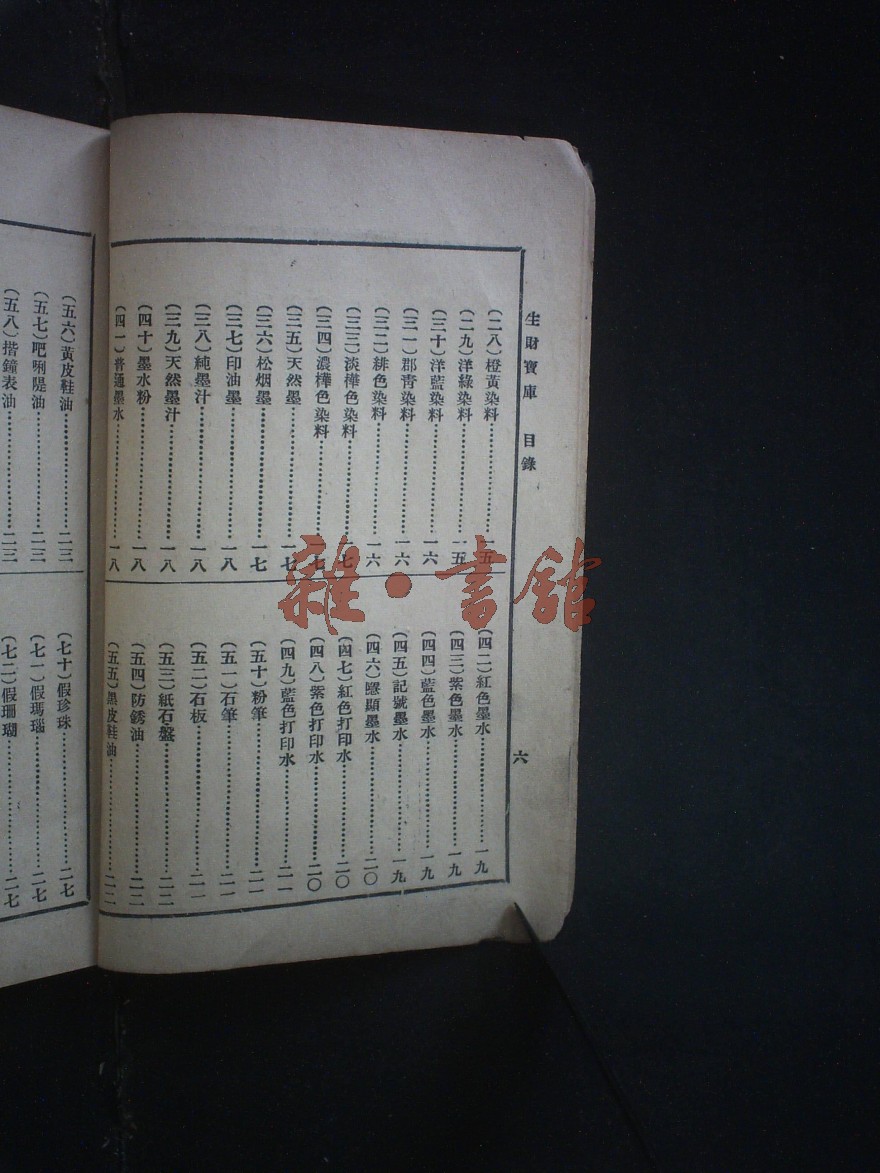 生財寶庫 目錄
六
(二八)橙黃染料…………一五
(二九)洋綠染料…………一五
(三十)洋藍染料…………一六
(三一)郡青染料…………一六
(三二)緋色染料…………一六
(三三)淡樺色染料…………一七
(三四)濃樺色染料…………一七
(三五)天然墨…………一七
(三六)松烟墨…………一七
(三七)印油墨…………一八
(三八)純墨汁…………一八
(三九)天然墨汁…………一八
(四十)墨水粉…………一八
(四一)普通墨水…………一八
(四二)紅色墨水…………一九
(四三)紫色墨水…………一九
(四四)藍色墨水…………一九
(四五)記號墨水…………一九
(四六)隱顯墨水…………二〇
(四七)紅色打印水…………二〇
(四八)紫色打印水…………二〇
(四九)藍色打印水…………二一
(五十)粉筆…………二一
(五一)石筆…………二一
(五二)石板…………二一
(五三)紙石盤…………二二
(五四)防銹油…………二二
(五五)黑皮鞋油…………二二
(五六)黃皮鞋油…………二三
(五七)吧唎隄油…………二三
(五八)揩鐘表油…………二三
(七十)假珍珠…………二七
(七一)假瑪瑙…………二七
(七二)假珊瑚…………二七
雜·書館